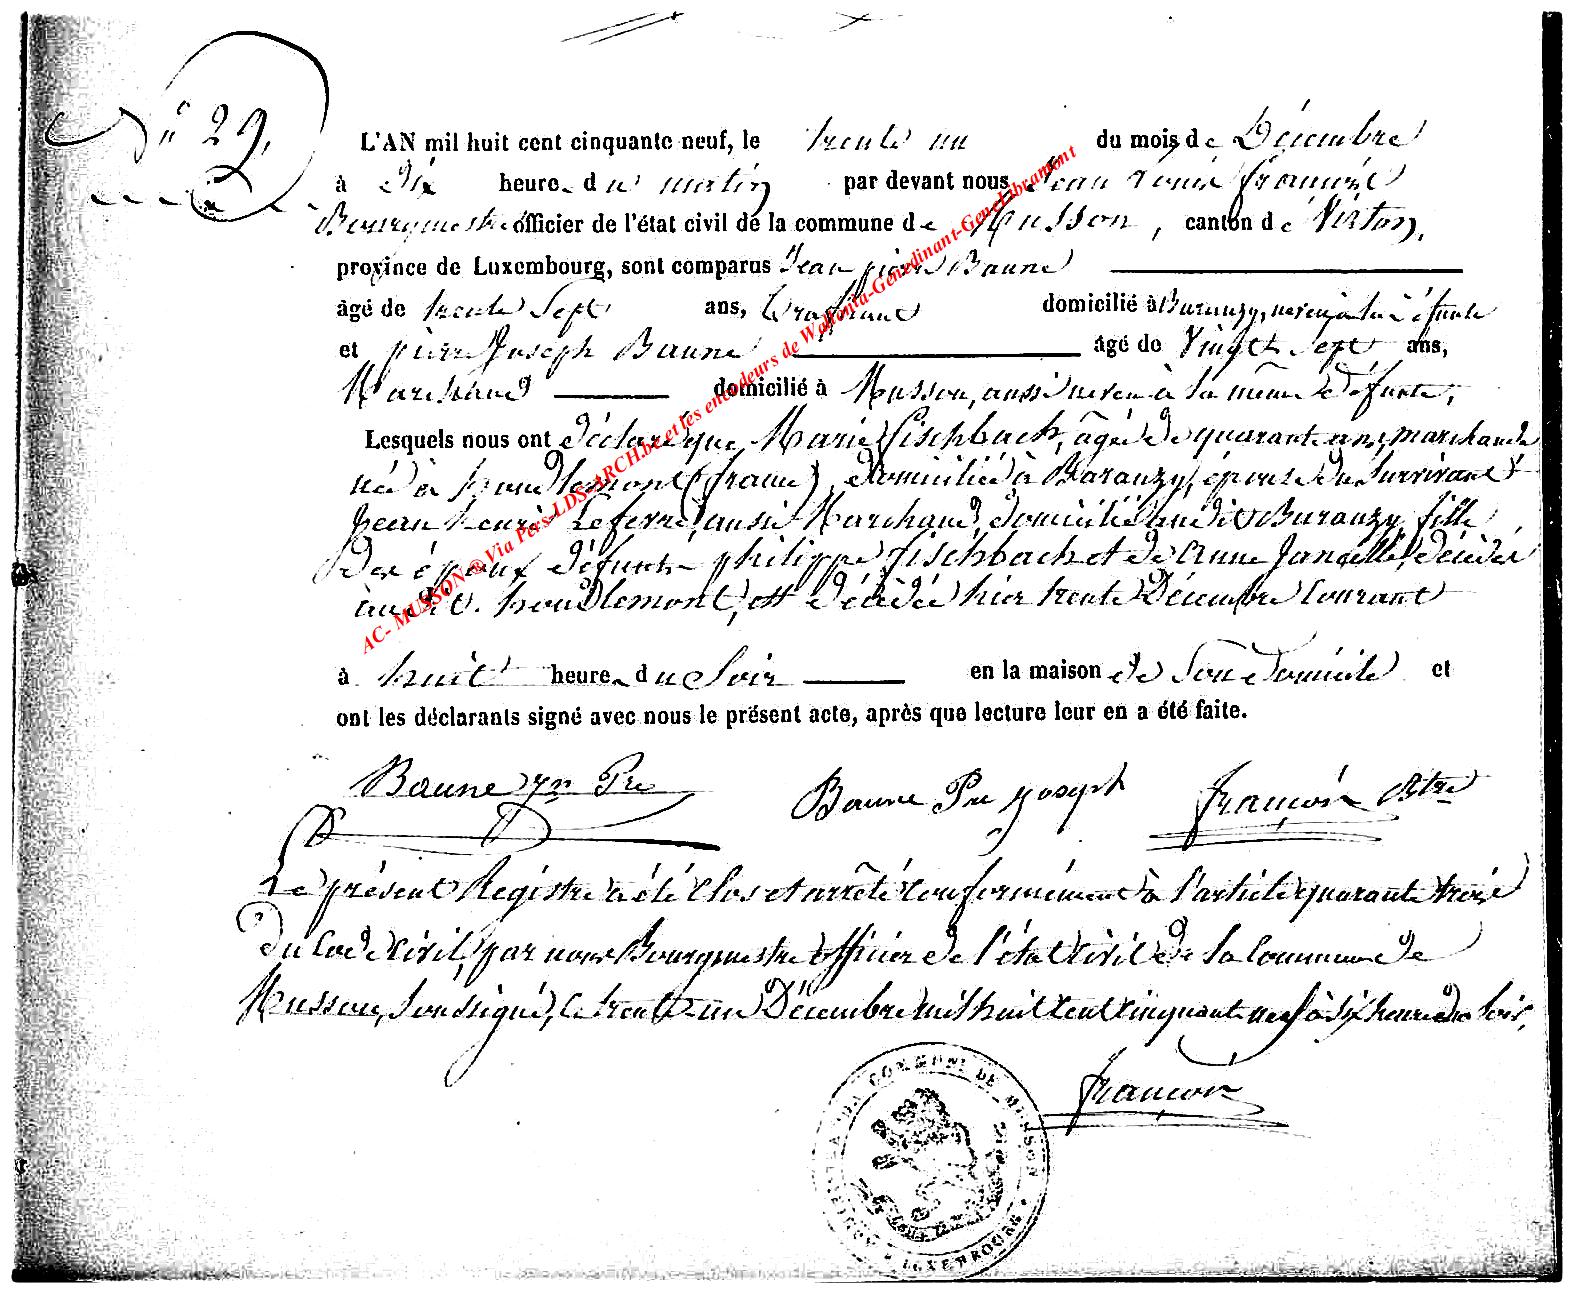 N° 29.
L'AN mil huit cent cinquante neuf, le trente un du mois de Décembre
à dix heure du matin par devant nous Jean Louis François
Bourgmestre officier de l'état civil de la commune de Musson, canton de Virton,
province de Luxembourg, sont comparus Jean pierre Baune
âgé de trente Sept ans, domicilié à Baranzy, neveu à la défunte
et pierre Joseph Baune âgé de Vingt Sept ans,
Marchand domicilié à Musson, aussi neveu à la même défunte,
Lesquels nous ont déclaré que Marie Fischbach, âgée de quarante ans, marchande
née à houdlemont (france), domiciliée à Baranzy, épouse du Survivant
Jean henri Lefevre, aussi Marchand, domicilié audit Baranzy, fille
des époux défunts philippe Fischbach et de Anne décédés
audit houdlemont, est décédée hier trente Décembre Courant
à huit heure du Soir en la maison de Son domicile et
ont les déclarants signé avec nous le présent acte, après que lecture leur en a été faite.
Baune Jn Pre Baune Pre Joseph François Btre
Le présent Registre a été Clos et arrêté conformément à l'article quarante trois
du Code civil, par nous Bourgmestre officier de l'état civil de la Commune de
Musson, Soussigné, le trente un Décembre mil huit cent cinquante neuf à six heure du Soir.
François
COMMUNE DE MUSSON
LUXEMBOURG
AC- MUSSON ® Via Pers-LDS-ARCH.be et les encodeurs de Wallonia-Genedinant-GeneLibramont